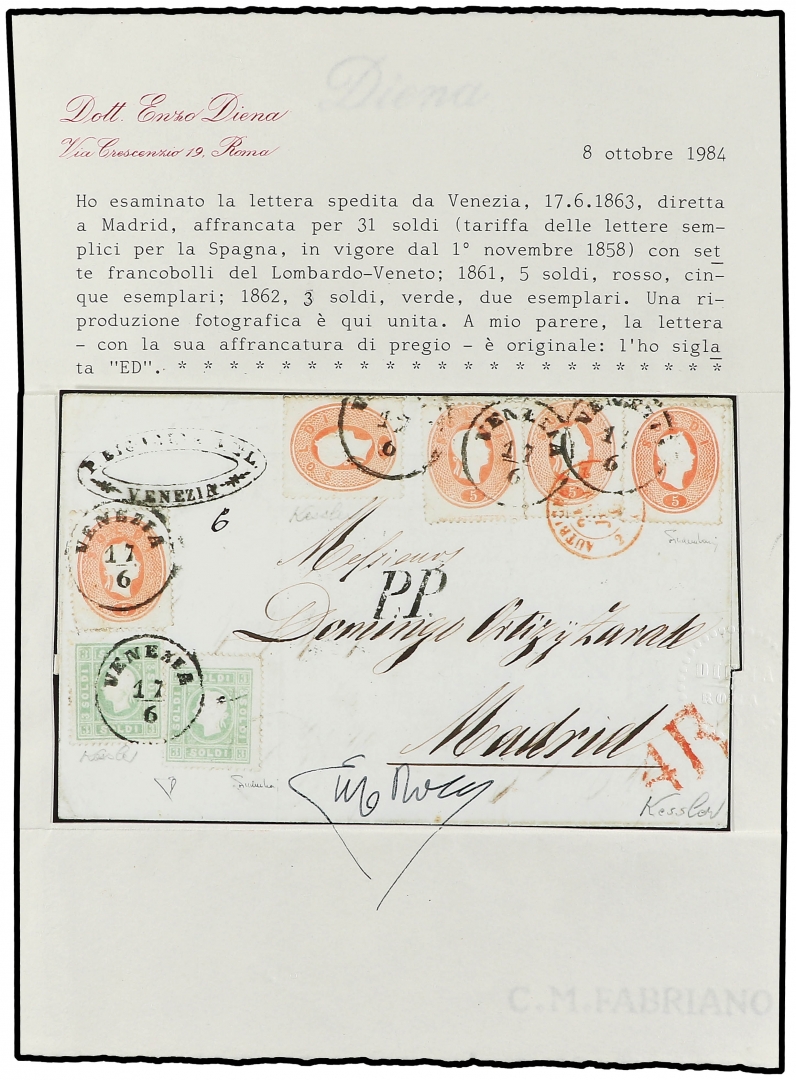 Diena
Dott. Enzo Diena
Via Crescenzio 19, Roma
8 ottobre 1984
Ho esaminato la lettera spedita da Venezia, 17.6.1863, diretta
a Madrid, affrancata per 31 soldi (tariffa delle lettere sem-
plici per la Spagna, in vigore dal 1° novembre 1858) con set
te francobolli del Lombardo-Veneto; 1861, 5 soldi, rosso, cin-
que esemplari; 1862, 3 soldi, verde, due esemplari. Una ri-
produzione fotografica è qui unita. A mio parere, la lettera
- con la sua affrancatura di pregio - è originale: l'ho sigla
ta "ED". * * * * * * * * * * * * * * * * * * * * *
VENEZIA
17
6
VENEZIA
6
Kessler
5
5
5
AUTRICH
VENEZIA
17
6
Messieurs
P.P.
Domingo Ortiz y Zarate
Madrid
VENEZIA
17
6
3 SOLDI 3
3 SOLDI 3
4R
Kessler
Kessler
DIENA
ROMA
C.M.FABRIANO